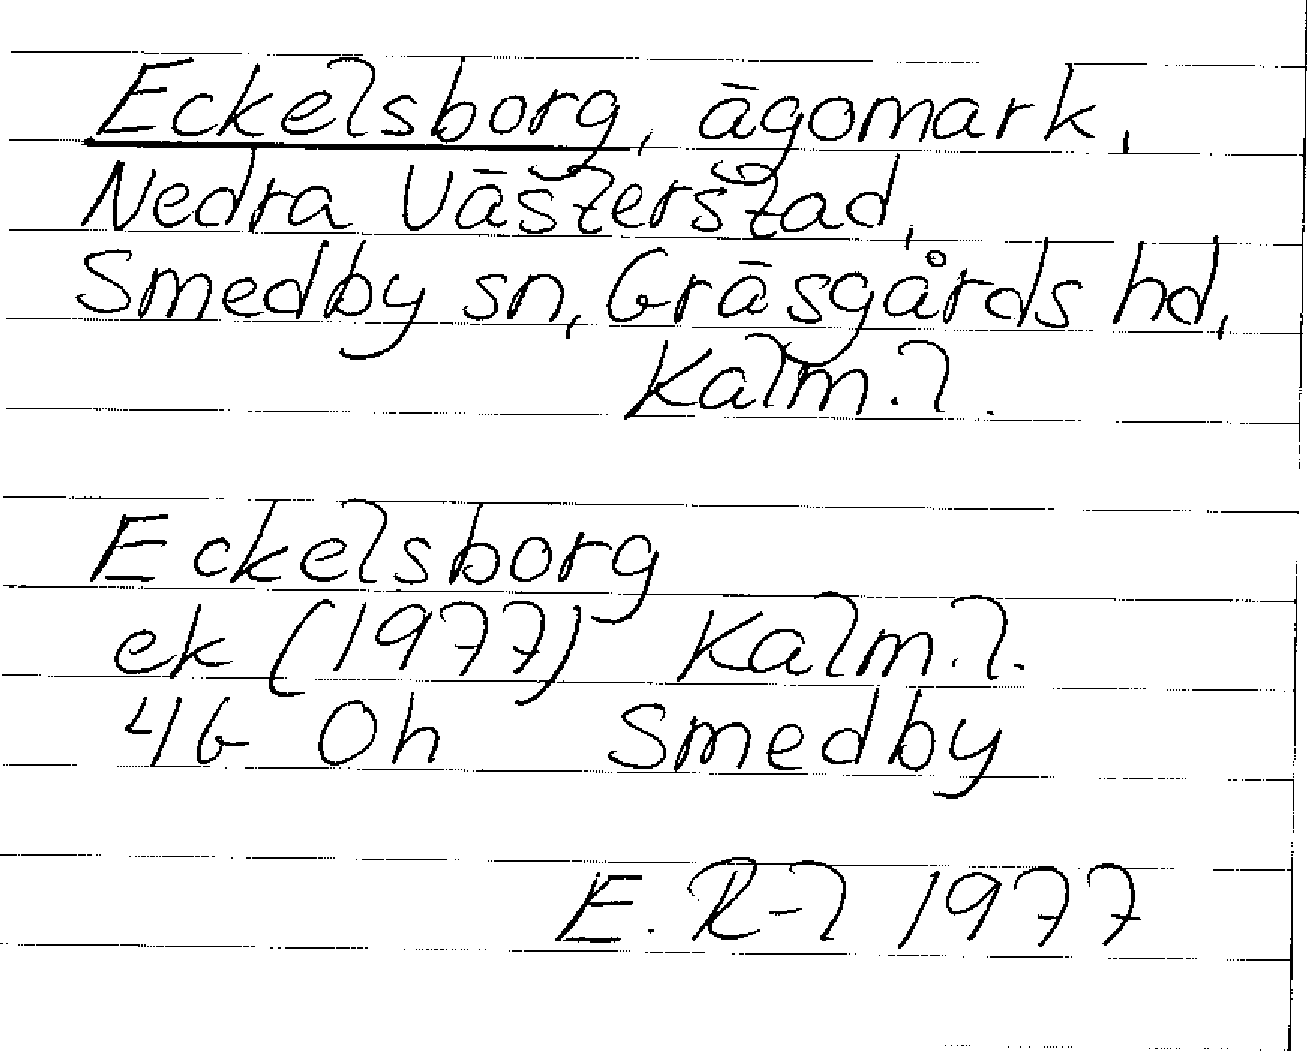 Eckelsborg, ägomark,
Nedra Västerstad,
Smedby sn, Gräsgårds hd,
Kalm. l.
Eckelsborg
ek (1977) Kalm. l.
4G 0h Smedby
E. R-l 1977